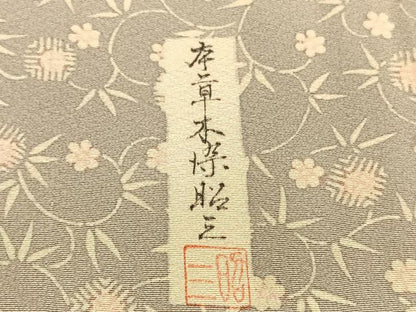 本草木染昭三
昭三